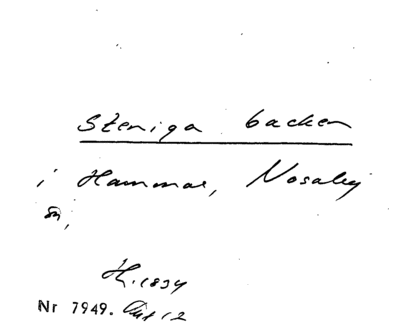 Steniga backen
i Hammar, Nosaby
sn,
H. 1834
Nr 7949.